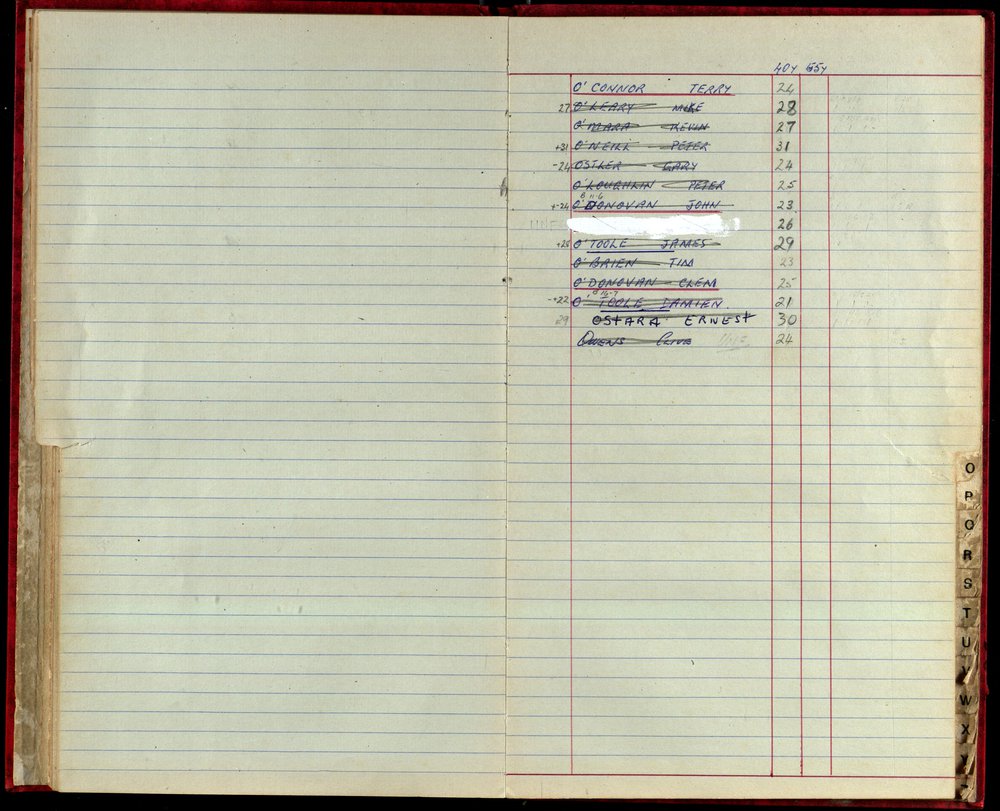 40Y 55Y
O'CONNOR TERRY 24
27 O'LEARY MIKE 28
O'MARA KEVIN 27
+31 O'NEILL PETER 31
-24 OSTLER GARY 24
O'LOUGHLIN PETER 25
+-24 O'DONOVAN JOHN 23
26
+28 O'TOOLE JAMES 29
O'BRIEN TIM 23
O'DONOVAN CLEM 25
-+22 O'TOOLE DAMIEN 21
29 OSTARA ERNEST 30
OWENS CLIVE 24
O
P
Q
R
S
T
U
V
W
X
Y